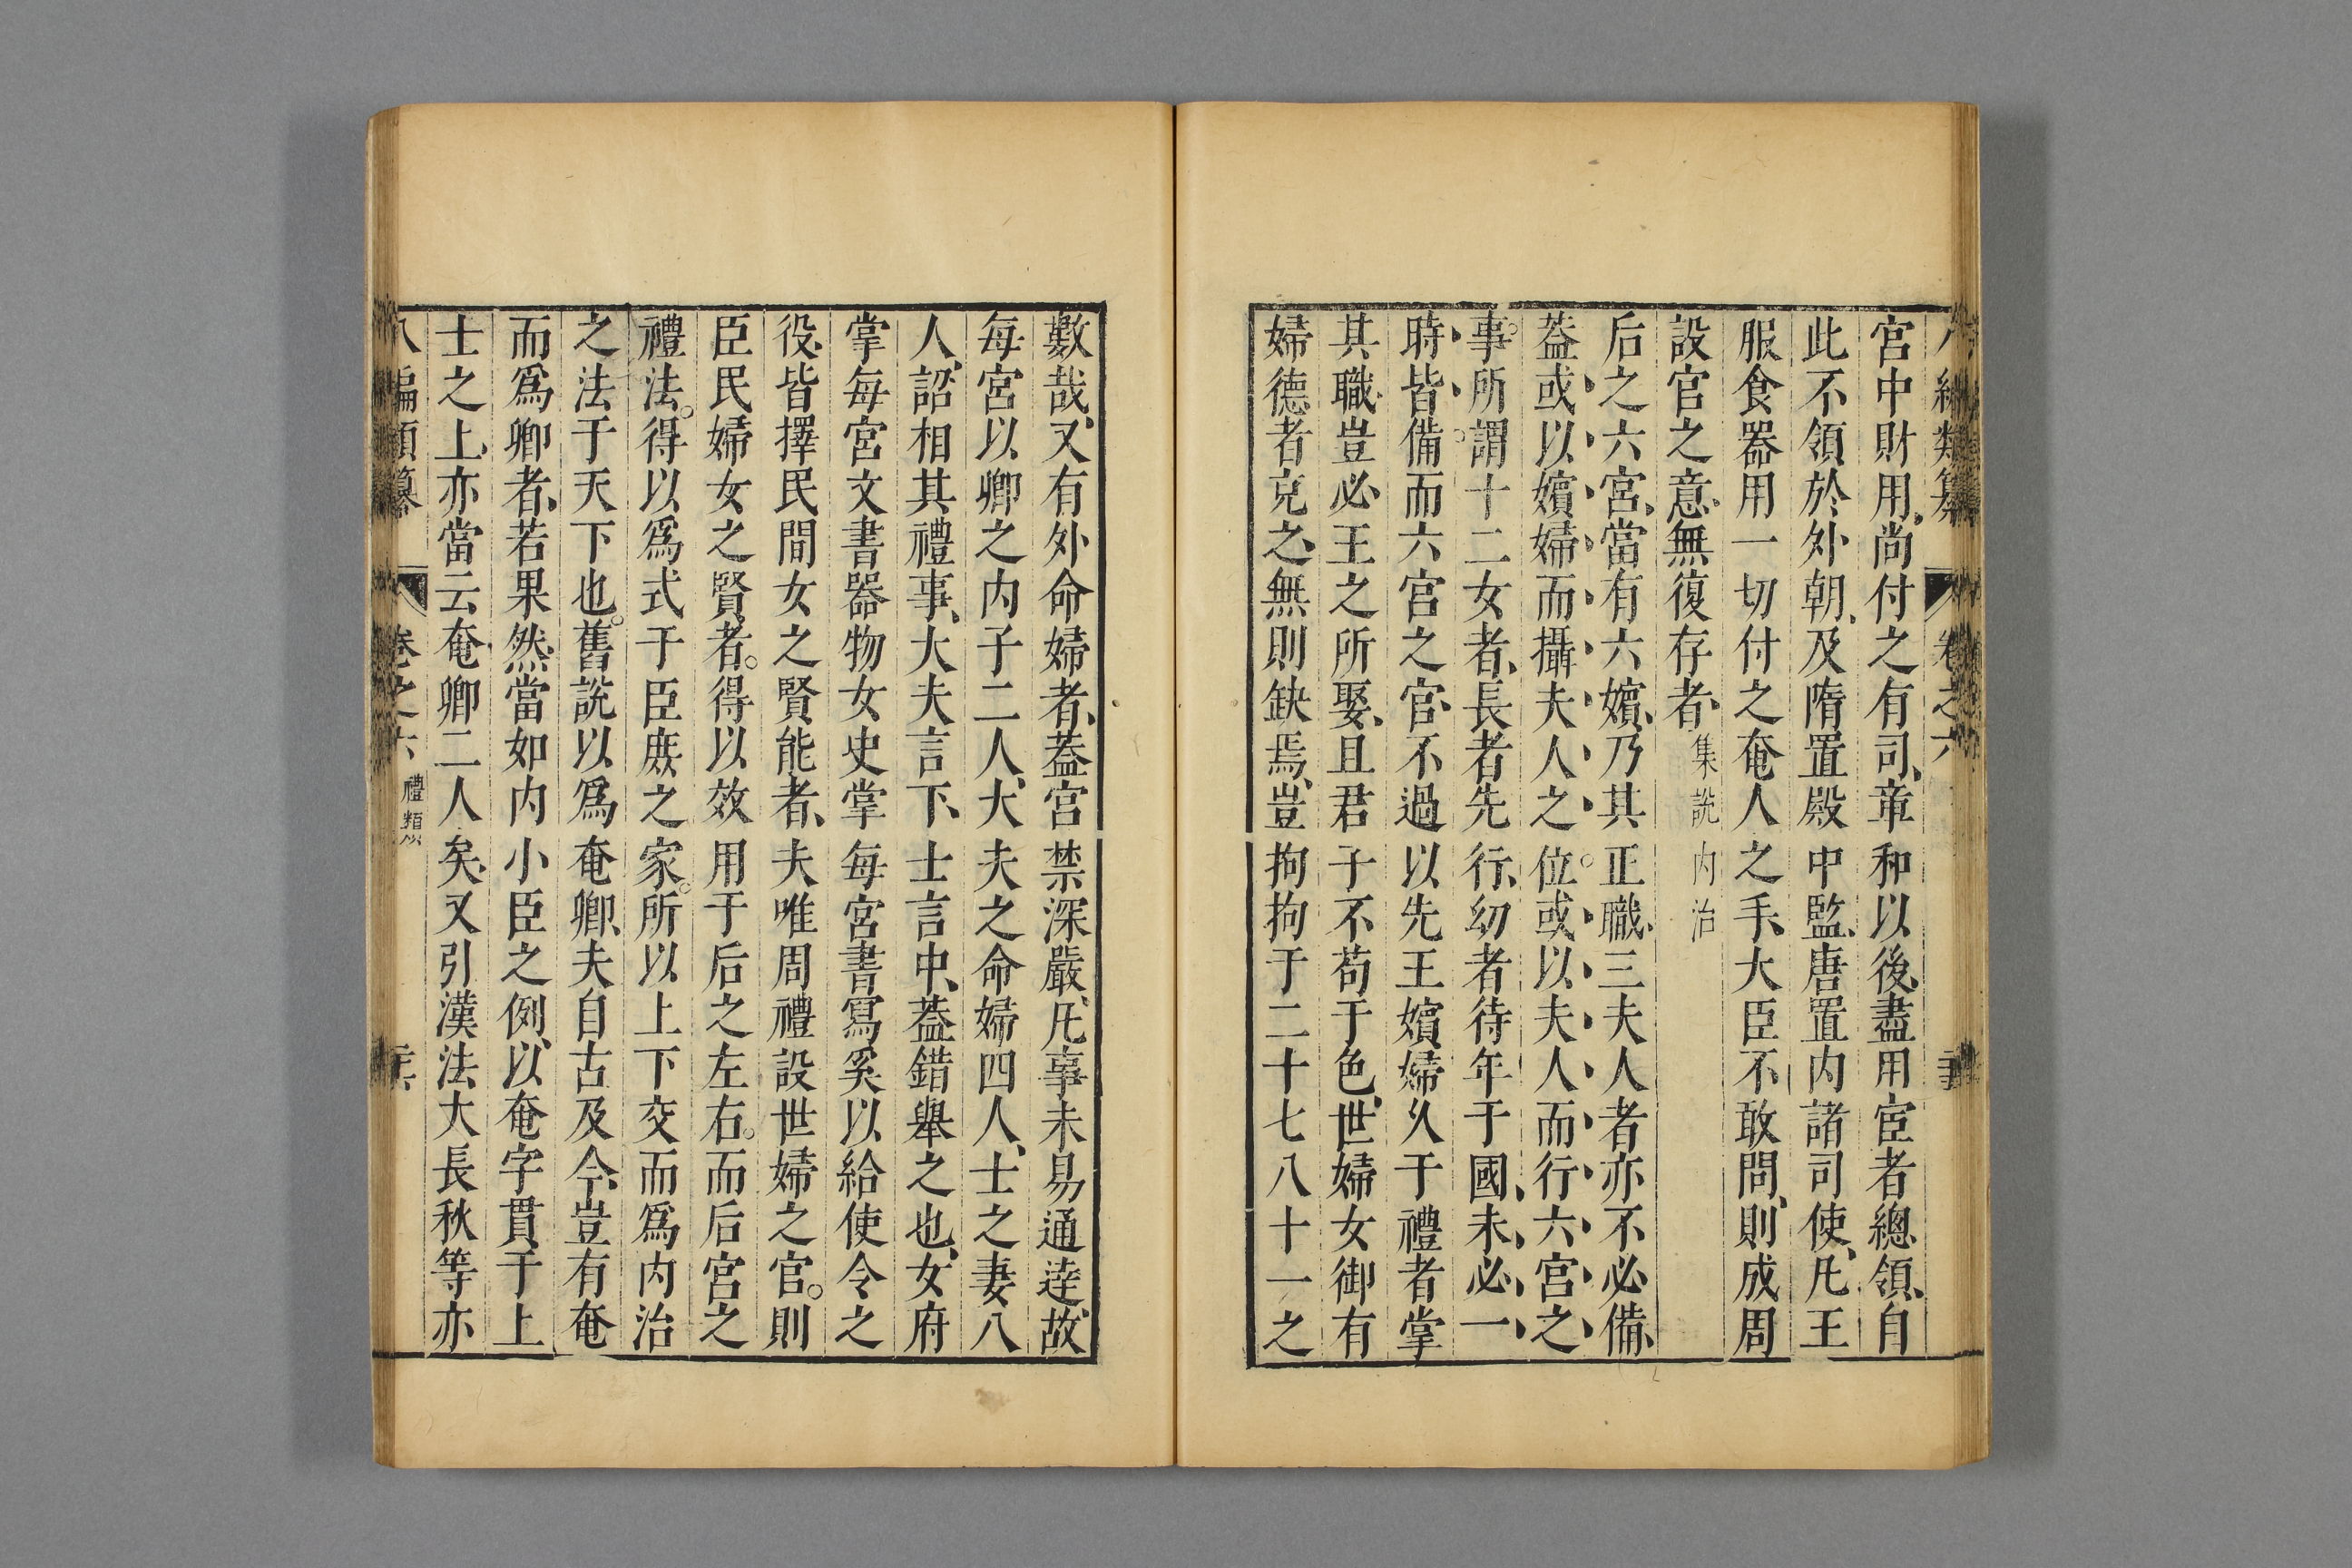 宮中財用、尚付之有司、章和以後、盡用宦者總領、自
此不領於外朝、及隋置殿中監、唐置内諸司使、凡王
服食器用一切付之奄人之手、大臣不敢問、則成周
設官之意、無復存者、集說内治
后之六宮、當有六嬪、乃其正職、三夫人者亦不必備、
葢或以嬪婦而攝夫人之位。或以夫人而行六宮之
事。所謂十二女者、長者先行、幼者待年于國、未必一
時皆備。而六宮之官、不過以先王嬪婦久于禮者掌
其職、豈必王之所娶、且君子不苟于色、世婦女御有
婦德者克之、無則缺焉、豈拘拘于二十七八十一之
數哉、又有外命婦者、葢宮禁深嚴、凡事未易通達、故
每宮以卿之内子二人、大夫之命婦四人、士之妻八
人、詔相其禮事、大夫言下、士言中、葢錯舉之也、女府
掌每宮文書器物女史掌每宮書寫奚以給使令之
役、皆擇民間女之賢能者、夫唯周禮設世婦之官。則
臣民婦女之賢者。得以效用于后之左右。而后宮之
禮法。得以爲式于臣庶之家。所以上下交而爲内治
之法于天下也。舊說以爲奄卿、夫自古及今、豈有奄
而爲卿者、若果然、當如内小臣之例、以奄字貫于上
士之上、亦當云奄卿二人矣、又引漢法大長秋等亦
八編類纂 卷之六 禮類